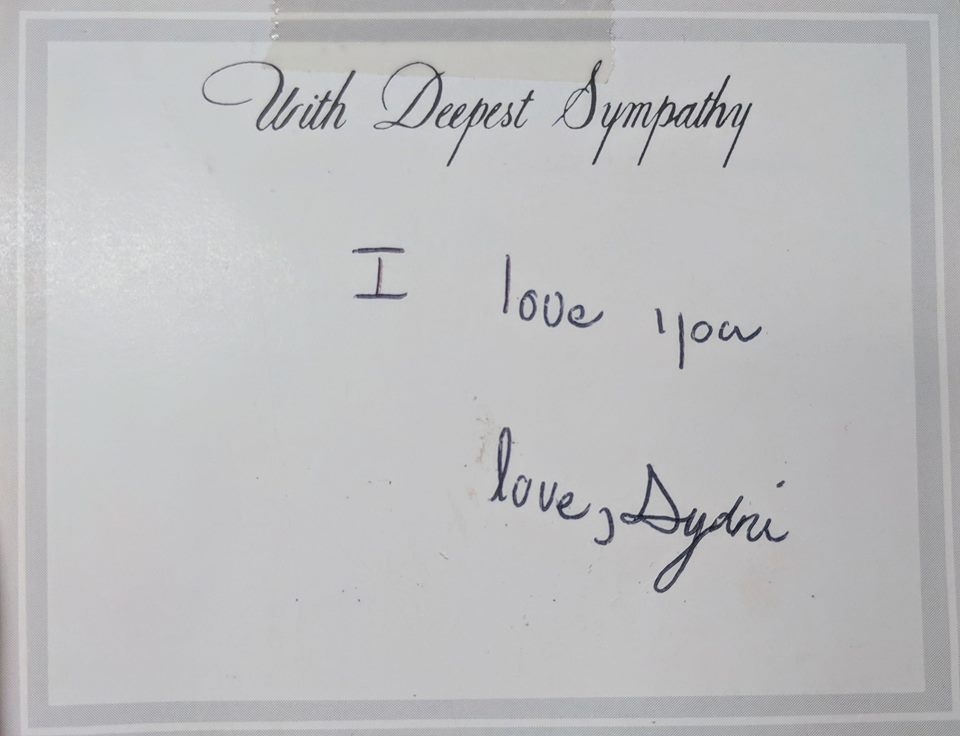 With Deepest Sympathy
I love you
love, Sydni